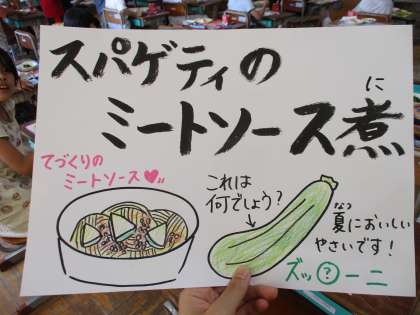 スパゲティの
ミートソース煮
に
てづくりの
ミートソース♥
これは
何でしょう?
なつ
夏においしい
やさいです!
ズッ?ーニ